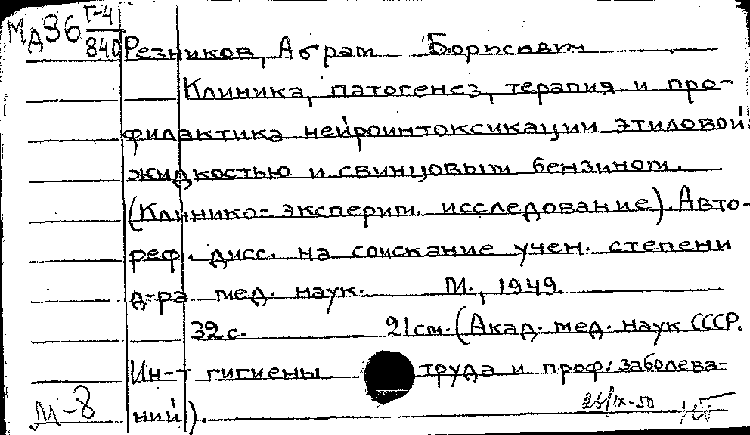 МА36 Г-4
840
Резников, Абрам Борисович
Клиника, патогенез, терапия и про-
филактика нейроинтоксикации этиловой
жидкостью и свинцовым бензином.
(Клинико-эксперим. исследование). Авто-
реф. дисс. на соискание учен. степени
д-ра мед. наук. М., 1949.
32 с. 21 см. (Акад. мед. наук СССР.
Ин-т гигиены труда и проф. заболева-
ний).
М-8